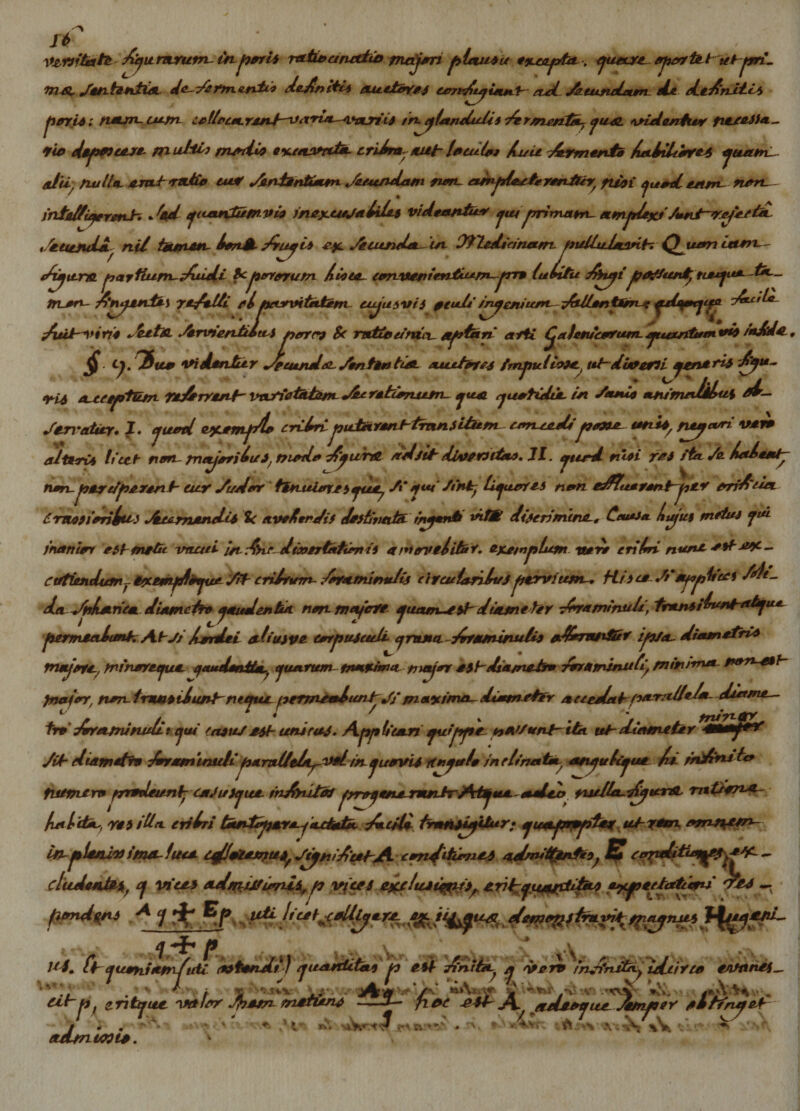 16
versitate figurarum in poris ratiocinatio majori plausu excepta. quare oportet ut pri-
ma sententia de fermentis definitis auctores confugiant ad secundam de definitis
poris: nam cum collocarent varia variis in glandulis fermenta, quae videntur necessa-
rio deposcere multis modis excavata cribra, aut loculos huic fermento habiliores quam
alii, nulla erat ratio cur sententiam secundam non amplecterentur, nisi quod eam non
intelligerent. Sed quantumvis inexcusabiles videantur qui primam amplexi sunt rejecta
secunda, nil tamen bonae frugis ex secunda in Medicinam pullulavit. Quoniam
figurae partium fluidi & pororum hisce convenientium pro lubitu fingi possunt, neque ta-
men fingentes refelli ob parvitatem cujusvis oculi ingenium fallentem; adeoque facile
fuit viris sectae servientibus poros & ratiocinia aptari arti Galenicorum quantumvis infidae.
§. 9. Duo videntur secundae sententiae auctores impulisse, ut diversi generis figu-
ris acceptum referrent varietatem secretionum quae quotidie in sanis animalibus ob-
servatur. I. quod exemplo cribri putarent transitum concedi posse unis, negari vero
alteris licet non majoribus, modo figurae adsit diversitas. II. quod nisi res ita se habeat,
non perciperent cur sudor tenuioresque, si qui sint, liquores non effluerent per orificia
crassioribus secernendis & avehendis destinata ingenti vitae discrimine. Causa hujus metus qui
inanior est metu vacui in fine dissertationis amovebitur. exemplum vero cribri nunc est ex-
cutiendum, exemploque sit cribrum foraminulis circularibus pervium. Hisce si applices soli-
da sphaerica diametro gaudentia non majore quam est diameter foraminuli, transibunt atque
permeabunt. At si hordei aliusve corpusculi grana foraminulis afferantur ipsa diametris
majore, minoreque gaudentia, quarum maxima major est diametro foraminuli, minima non est
major, non transibunt neque permeabunt, si maxima diameter accedat parallela diame-
tro foraminuli: qui casus est unicus. Applicari quippe possunt ita ut diameter minor
sit diametro foraminuli parallela, vel in quovis angulo inclinata, angulique hi infinito
numero prodeunt, casusque infinitos progenerant. Atque adeo nulla figurae ratione
habita, res illa cribri tantopere jactata facile transigitur: quapropter, ut rem omnem
in plenissima luce collocemus, significet A conditiones admittentes, E conditiones ex-
cludentes, q vices admissionis, p vices exclusionis, erit quantitas expectationi res-
pondens Aq + Ep uti licet colligere ex iis quae demonstravit magnus Hugeni-
q + p
us. Et quoniam (uti ostendi) quantitas p est finita, q vero infinita, idcirco evanes-
cit p, eritque valor spem metiens Aq hoc est A, adeoque semper obtinget
q
admissio.